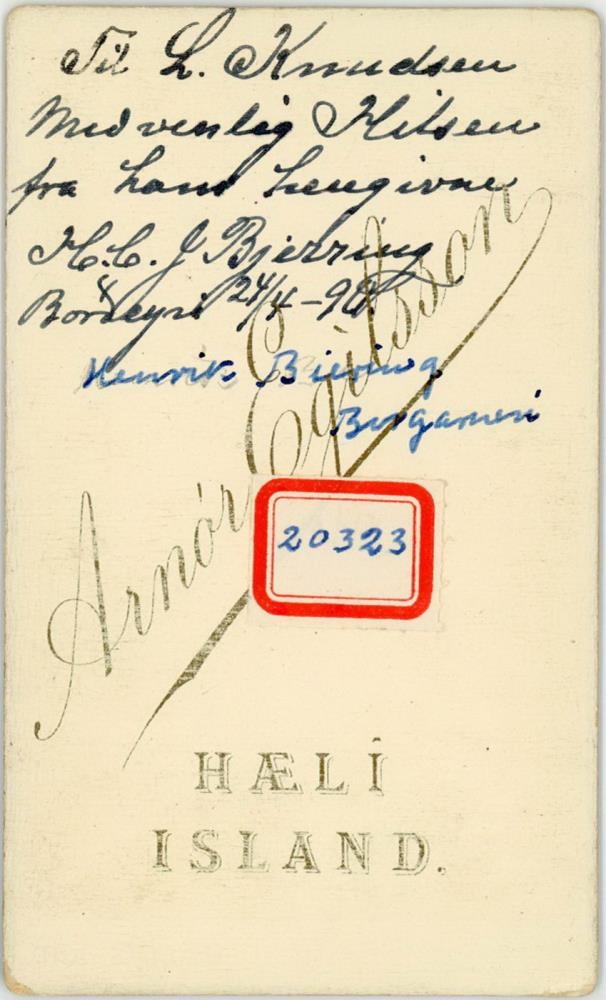 Til L. Knudsen
Med venlig Hilsen
fra hans hengivne
H. C. J Bjerring
Bordeyri 24/4-90
Henrik Biering
Borgarnesi
Arnór Egilsson
20323
HÆLÍ
ISLAND.